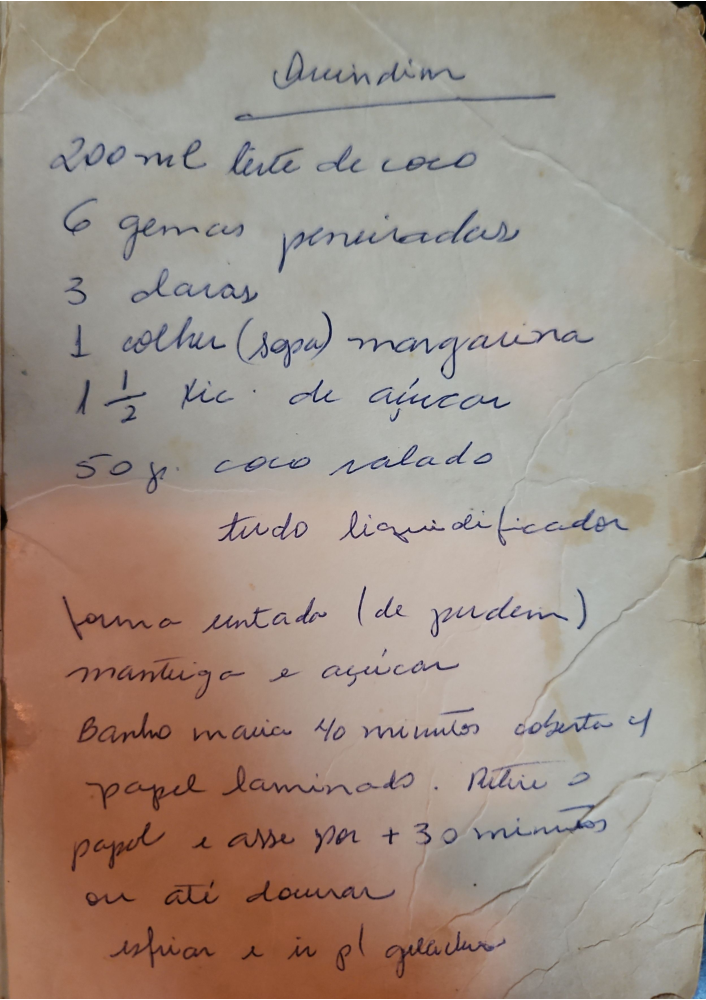 Quindim
200 ml leite de coco
6 gemas peneiradas
3 claras
1 colher (sopa) margarina
1 1/2 xic. de açúcar
50 g. coco ralado
tudo liquidificador
forma untada (de pudem)
manteiga e açúcar
Banho maria 40 minutos coberta c/
papel laminado. Retire o
papel e asse por + 30 minutos
ou até dourar
esfriar e ir p/ geladeira